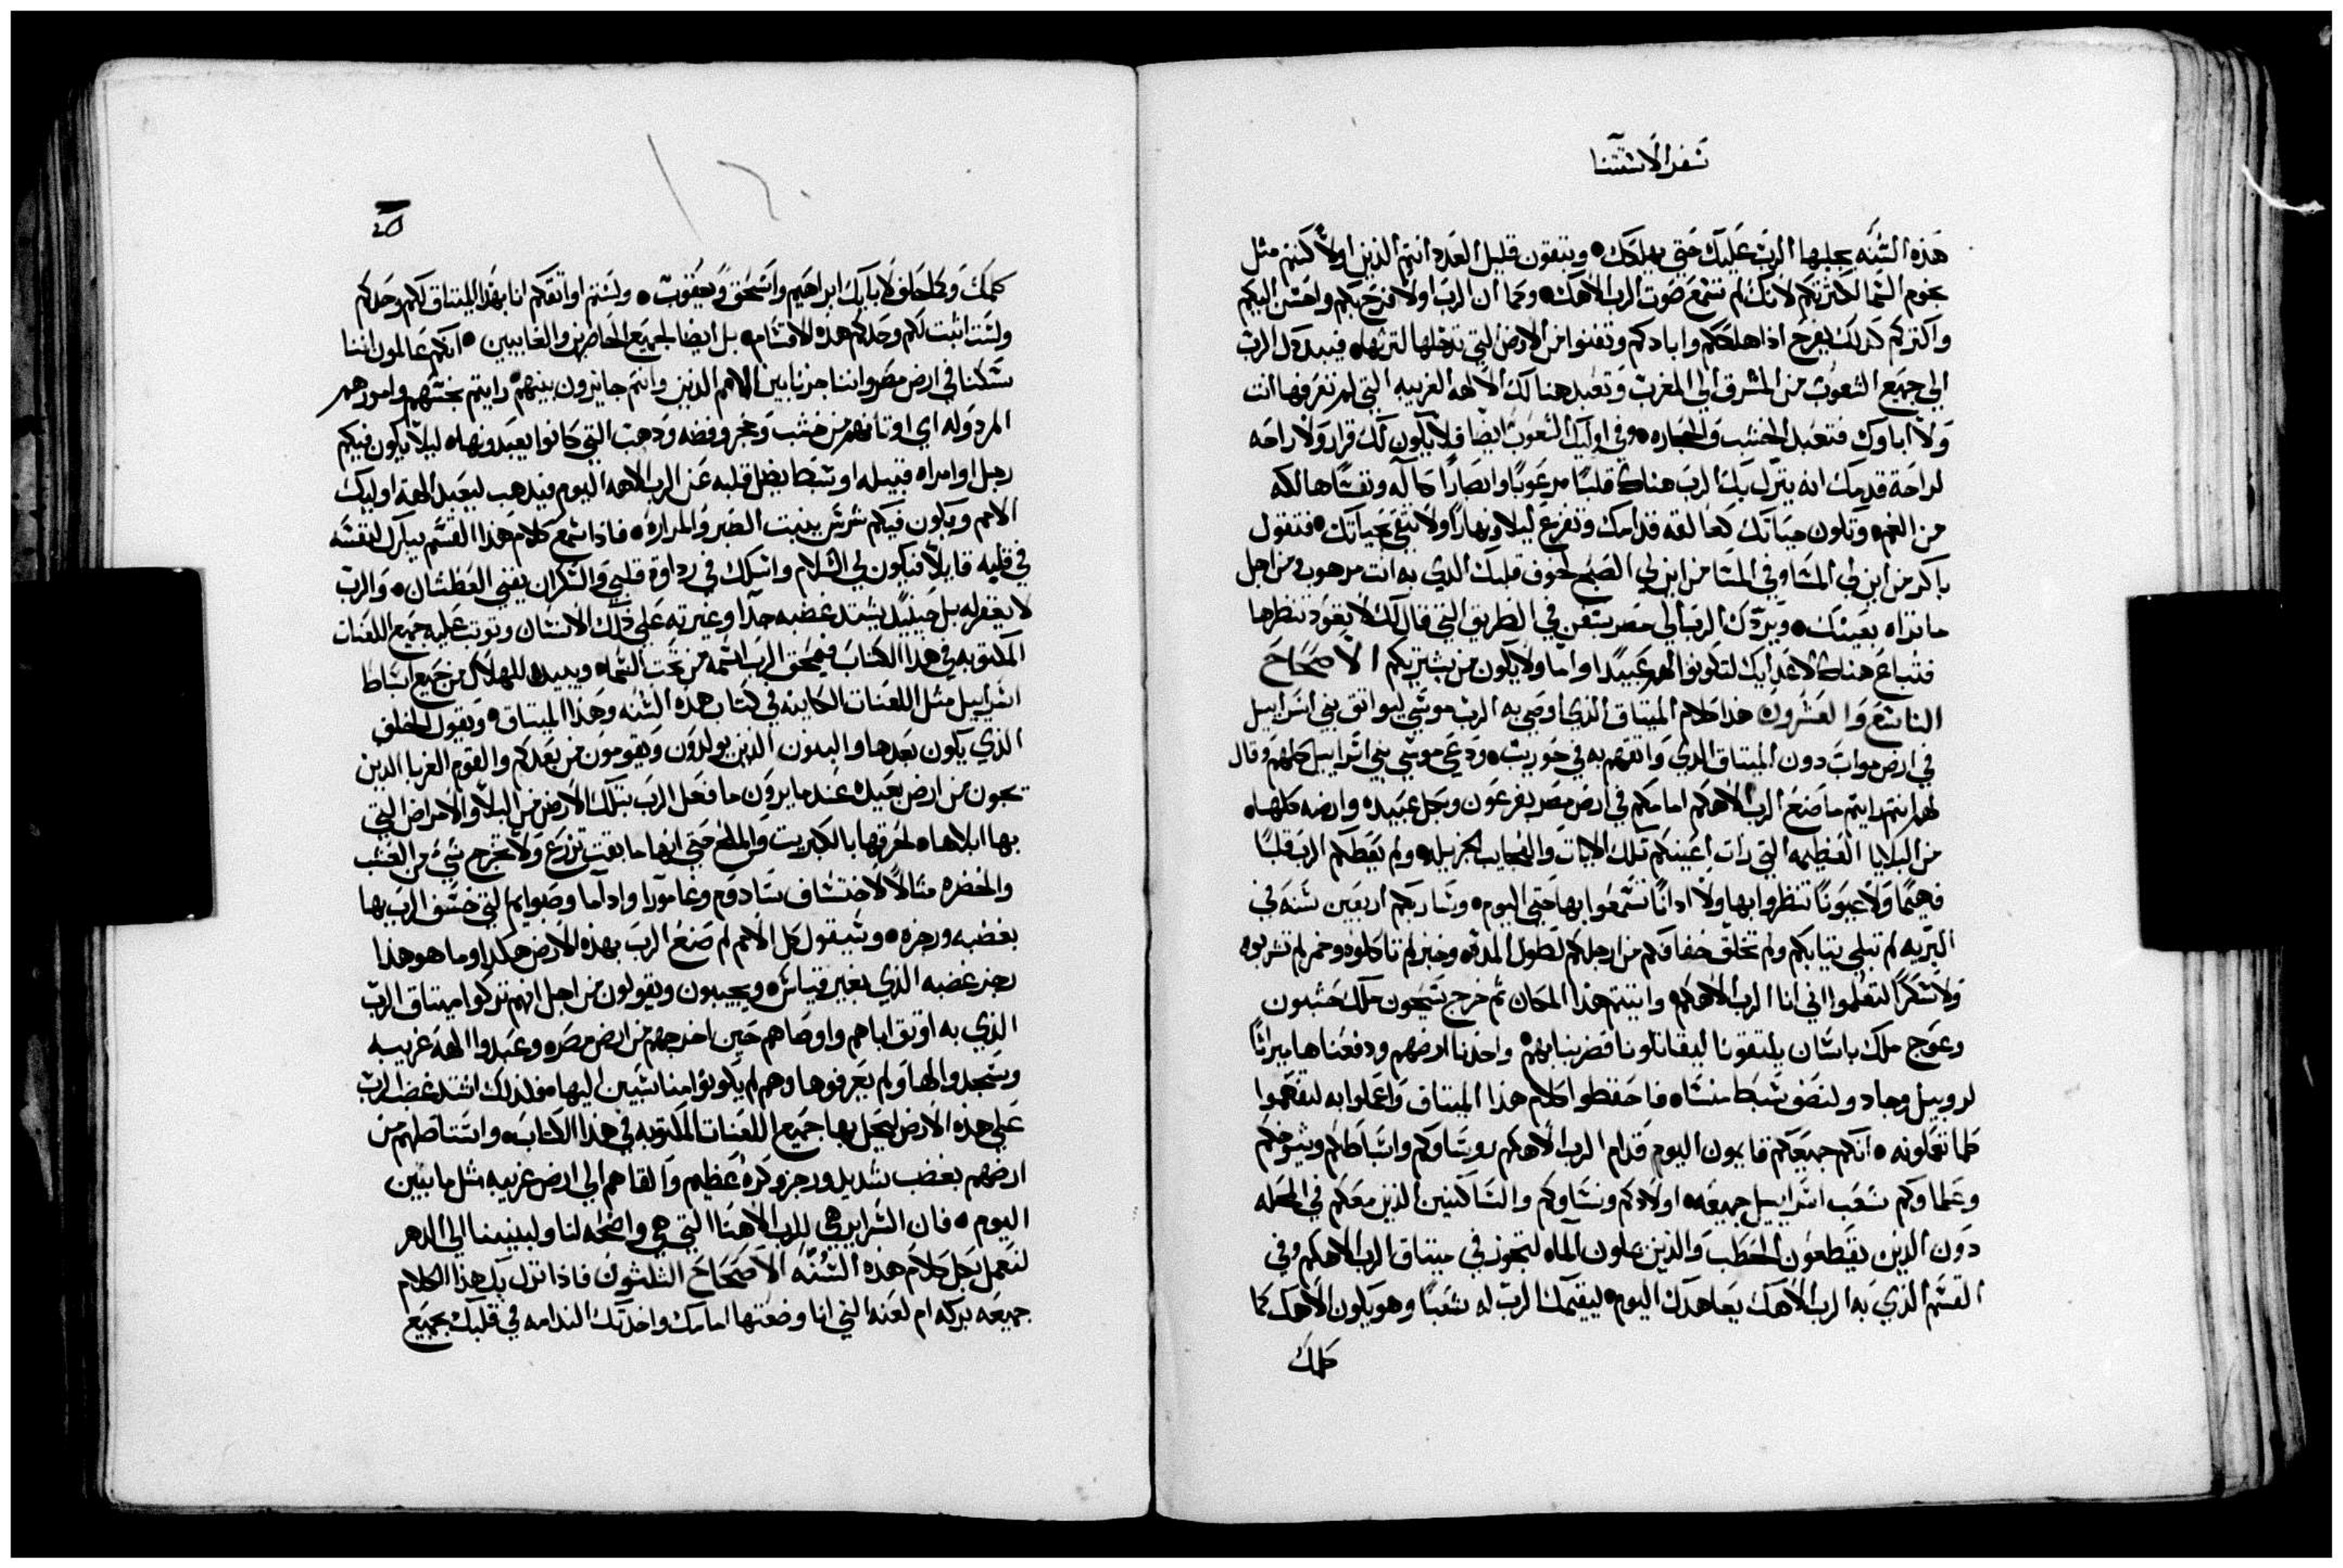 سفر الاستثنا
هذه السنه يجلبها الرب عليك حتي يهلكك وتبقون قليل العدد انتم الذين اولا كنتم مثل
نجوم السما لكثرتكم لانك لم تسمع صوت الرب الاهك وكما ان الرب اولا فرح بكم واحسن اليكم
واكتركم كدلك يفرح اذا اهلككم وابادكم وتفنوا من الارض التي تدخلها لترثها فيبددك الرب
الي جميع الشعوب من المشرق الي المغرب وتعبد هناك الالهه الغريبه التي لم تعرفها انت
ولا اباوك فتعبد الخشب والحجاره وفي اوليك الشعوب ايضا فلا يكون لك قرار ولا راحه
لراحة قدمك انه ينزل بك الرب هناك قلبا مرعوبا وابصارا كآله ونفسا هالكه
من الغم وتكون حياتك كعالقه قدامك وتفزع ليلا ونهارا ولا تثق بحياتك فتقول
باكر من اين لي المسا وفي المسا من اين لي الصبح لخوف قلبك الدي به انت مرهوب ومن اجل
ما تراه بعينك ويردك الرب الي مصر بسفن في الطريق التي قال لك لا يعود تنظرها
فتباع هناك لاعدايك لتكونوا لهم عبيدا واما ولا يكون من يشتريكم الاصحاح
التاسع والعشرون هذا كلام الميتاق الذي اوصي به الرب موسي ليواتق بني اسراييل
في ارض مواب دون الميتاق الدي واتقهم به في حوريب ودعي موسي بني اسراييل كلهم وقال
لهم انتم رايتم ما صنع الرب الاهكم امامكم في ارض مصر بفرعون وبجل عبيده وارضه كلها
من البلايا العظيمه التي رات اعينكم تلك الايات والعجايب الجزيله ولم يعطكم الرب قلبا
فهيما ولا عيونا تنظروا بها ولا ادانا تسمعوا بها حتي اليوم وساربكم اربعين سنه في
البريه لم تبلي تيابكم ولم تخلق خفافكم من ارجلكم لطول المده وخبز لم تاكلوه وخمر لم تشربوه
ولا سكرا لتعلموا اني انا الرب الاهكم واتيتم هذا المكان تم خرج سيحون ملك حشبون
وعوج ملك باسان يلتقونا ليقاتلونا فضربناهم واخدنا ارضهم ودفعناها ميراثا
لروبيل وجاد ولنصف سبط منسا فاحفظوا كلام هذا الميتاق واعملوا به لتفهموا
كلما تعملونه انكم جميعكم قايمون اليوم قدام الرب الاهكم روساوكم واسباطكم وشيوخكم
وعلماوكم شعب اسراييل جميعه اولادكم ونساوكم والساكنين الذين معكم في المحله
دون الدين يقطعون الحطب والذين يملون الماء لتجوز في ميتاق الرب الاهكم وفي
القسم الذي به الرب الاهك يعاهدك اليوم ليقيمك الرب له شعبا وهو يكون الاهك كما
كلمك
كلمك وكما حلف لابايك ابراهيم واسحق ويعقوب ولستم اواتقكم انا بهذا الميتاق لكم وحدكم
ولست اثبت لكم وحدكم هده الاقسام بل ايضا لجميع الحاضرين والغايبين انكم عالمون اننا
سكنا في ارض مصر واننا جزنا بين الامم الدين وانتم جايزون بينهم رايتم نجسهم وامورهم
المردوله اي اوتانهم من خشب وحجر وفضه ودهب التي كانوا يعبدونها ليلا يكون فيكم
رجل او امراه قبيله او سبط يضل قلبه عن الرب الاهه اليوم فيدهب ليعبد الهة اوليك
الامم ويكون فيكم شرش ينبت الصبر والمراره فاذا سمع كلام هذا القسم يبارك لنفسه
في قلبه قايلا فيكون لي السلام واسلك في رداوة قلبي والسكران يفني العطشان والرب
لا يغفر له بل حينيد يشتد غضبه جدا وغيرته علي ذلك الانسان وتوتب عليه جميع اللعنات
المكتوبه في هدا الكتاب فيمحق الرب اسمه من تحت السما ويبيده للهلاك من جميع اسباط
اسراييل مثل اللعنات الكاينه في كتاب هده السنه وهذا الميتاق ويقول الخلف
الذي يكون بعدها والبنون الدين يولدون ويقومون من بعدكم والقوم الغربا الدين
يجون من ارض بعيده عند ما يرون ما فعل الرب بتلك الارض من البلا والامراض التي
بها ابلاها لحرقها بالكبريت والملح حتي انها ما بقت تزرع ولا تخرج شي من العشب
والخضره مثالا لاختساف سادوم وعامورا وادآما وصبوايم التي خسف الرب بها
بغضبه ورجزه وسيقول كل الامم لم صنع الرب بهذه الارض هكدا وما هو هذا
رجز غضبه الذي بغير قياس ويجيبون ويقولون من اجل انهم تركوا ميتاق الرب
الذي به اوتق اباهم واوصاهم حين اخرجهم من ارض مصر وعبدوا الهة غريبه
وسجدوا لها ولم يعرفوها وهم لم يكونوا مناسبين اليها فلذلك اشتد غضب الرب
علي هذه الارض ليجلب بها جميع اللعنات المكتوبه في هذا الكتاب واستاصلهم من
ارضهم بغضب شديد ورجز وكره عظيم والقاهم الي ارض غريبه مثل ما تبين
اليوم فان السراير هي للرب الاهنا التي هي واضحه لنا ولبنينا الي الدهر
لنعمل بكل كلام هذه السنه الاصحاح الثلثون فاذا نزل بك هذا الكلام
جميعه بركه ام لعنه التي انا وضعتها امامك واخدتك الندامه في قلبك بجميع